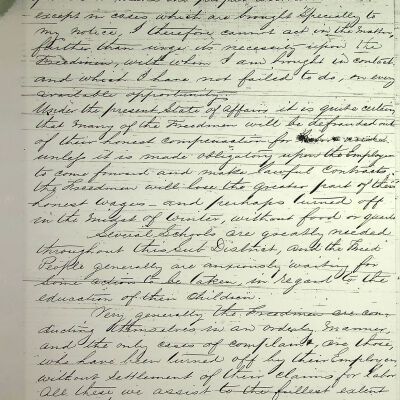 except in cases which are brought Specially to
my notice, I therefore cannot act in the matter,
further than urge its necessity upon the
Freedmen, with whom I am brought in contact,
and which I have not failed to do, on every
available opportunity.
Under the present State of affairs it is quite certain
that many of the Freedmen will be defrauded out
of their honest compensation for
unless it is made obligatory upon the Employer
to come forward and make lawful Contracts,
the Freedmen will lose the greater part of their
honest wages - and perhaps turned off
in the midst of Winter, without food or
Several Schools are greatly needed
throughout this Sub District, and the Freed
People generally are anxiously waiting for
some action to be taken, in regard to the
education of their Children.
Very generally the Freedmen are con
ducting themselves in an orderly manner,
and the only cases of complaint are those
who have been turned off by their Employers
without Settlement of their claims for labor
All these we assist to the fullest extent